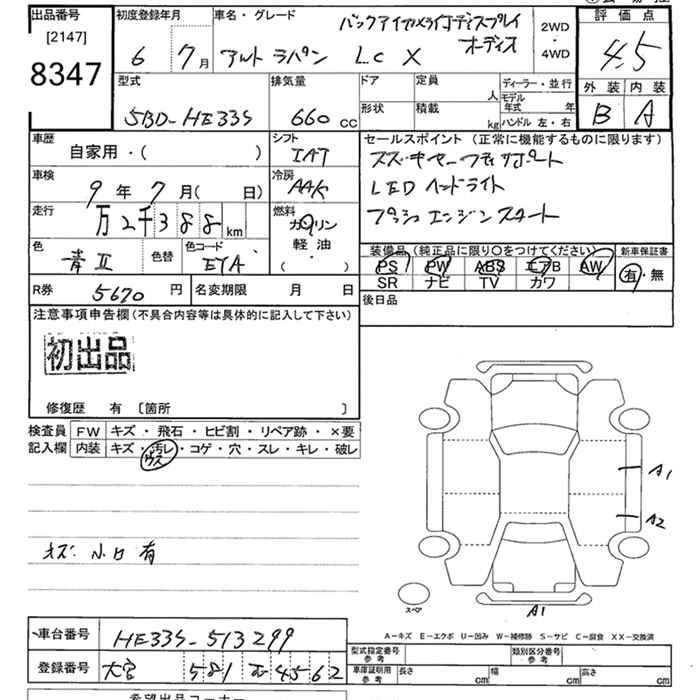 出品番号
[2147]
8347
初度登録年月
6年 7月
車名・グレード
アルト ラパン LC X
バックアイカメラ付ディスプレイ
オーディオ
2WD
・
4WD
評価点
4.5
外装 内装
B A
型式
5BD-HE33S
排気量
660 CC
ドア
形状
定員
人
積載
kg
ディーラー・並行
モデル年式 年
ハンドル 左・右
車歴
自家用・( )
シフト
IAT
車検
9年 7月( 日)
冷房
AAC
走行
万2千388km
燃料
ガソリン
軽油・
( )
色
青II
色替
色コード
セールスポイント (正常に機能するものに限ります)
スズキセーフティサポート
LEDヘッドライト
プッシュエンジンスタート
装備品 (純正品に限り○をつけてください)
PS PW ABS エアB AW
SR ナビ TV カワ
新車保証書
有・無
R券
5670円
名変期限 月 日
後日品
注意事項申告欄(不具合内容等は具体的に記入して下さい)
初出品
修復歴 有 〔箇所 〕
検査員
記入欄
FW キズ・飛石・ヒビ割・リペア跡・×要
内装 キズ・汚レ・コゲ・穴・スレ・キレ・破レ
ウス
キズ. 小凹有
A1
A2
スペア
A1
A-キズ E-エクボ U-凹み W-補修跡 S-サビ C-腐食 XX-交換済
車台番号
HE33S-513299
登録番号
大宮 581 む 4562
型式指定番号
参考
類別区分番号
参考
車庫証明用
参考
長さ cm
幅 cm
高さ cm
希望出品コーナー